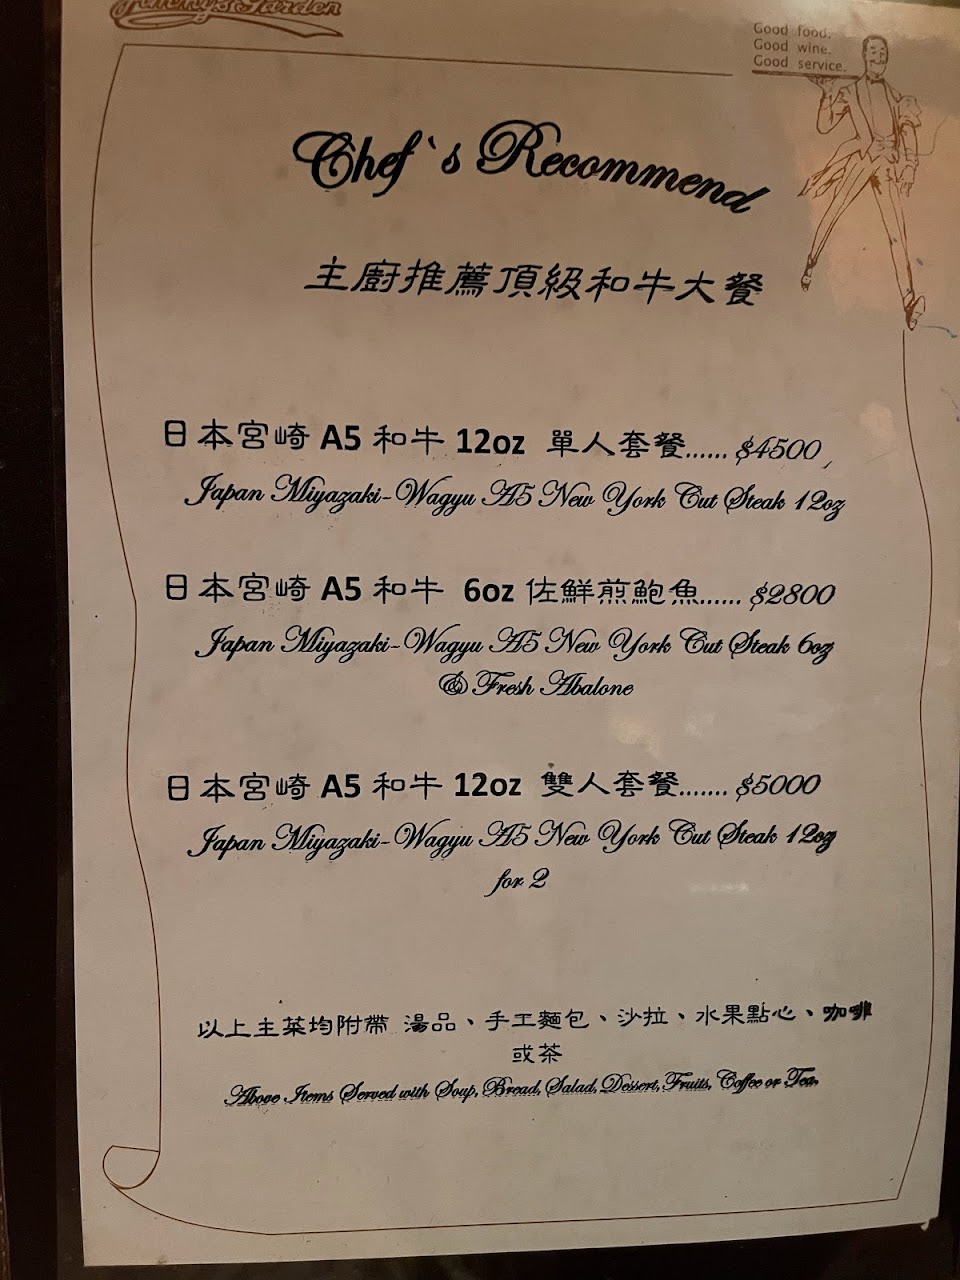 Jimmy's Garden
Good food.
Good wine.
Good service.
Chef`s Recommend
主廚推薦頂級和牛大餐
日本宮崎 A5 和牛 12oz 單人套餐...... $4500
Japan Miyazaki-Wagyu A5 New York Cut Steak 12oz
日本宮崎 A5 和牛 6oz 佐鮮煎鮑魚...... $2800
Japan Miyazaki-Wagyu A5 New York Cut Steak 6oz
& Fresh Abalone
日本宮崎 A5 和牛 12oz 雙人套餐....... $5000
Japan Miyazaki-Wagyu A5 New York Cut Steak 12oz
for 2
以上主菜均附帶 湯品、手工麵包、沙拉、水果點心、咖啡
或茶
Above Items Served with Soup, Bread, Salad, Dessert, Fruits, Coffee or Tea.